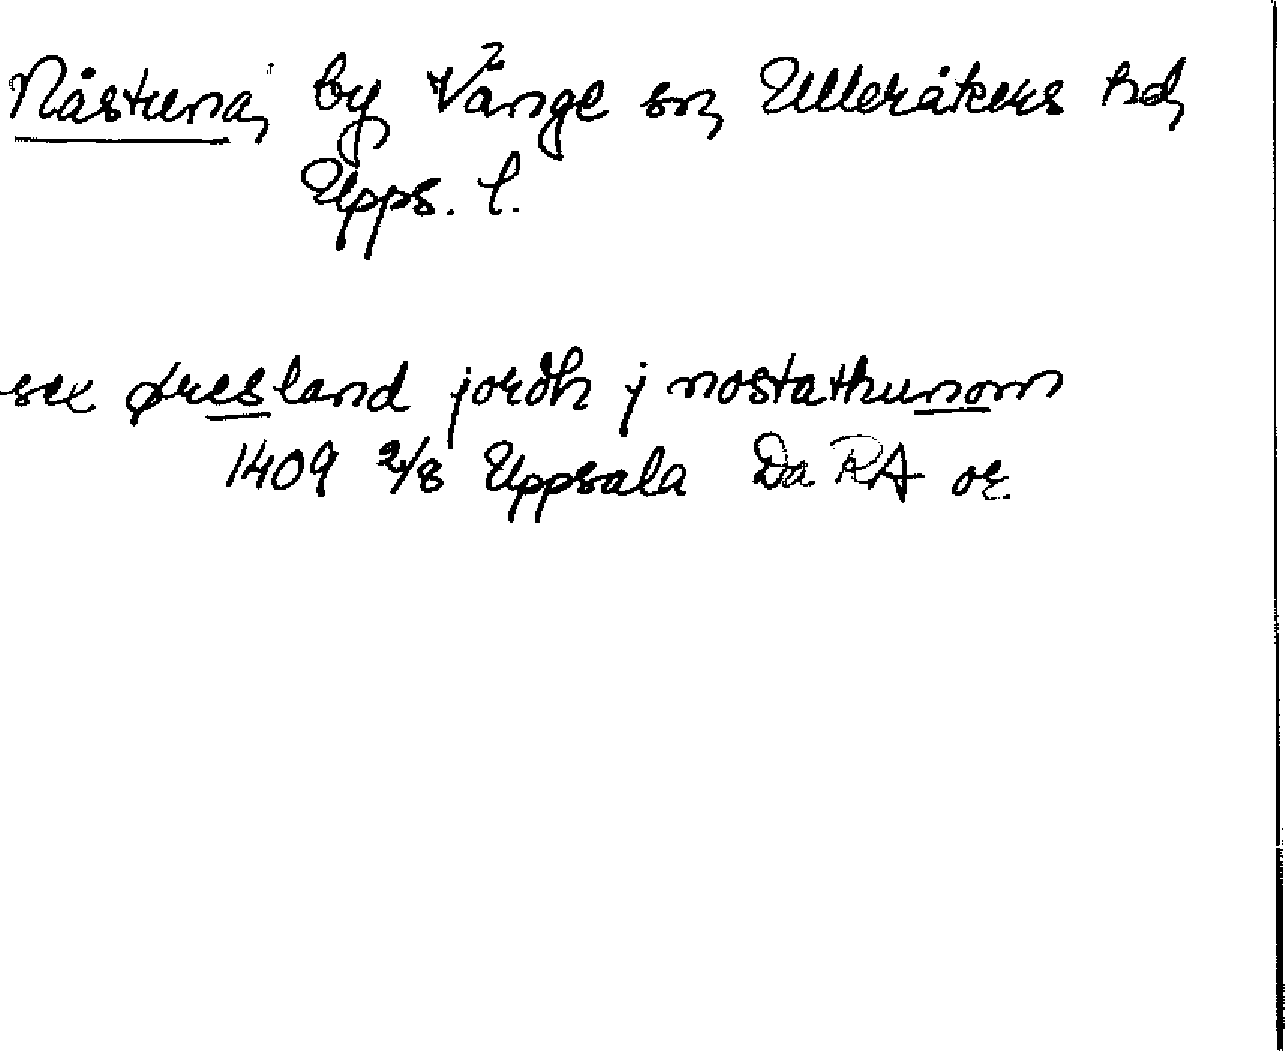 Nåstuna, by Vänge sn, Ulleråkers hd,
Upps. l.
sex øresland jordh j nostathunom
1409 2/8 Uppsala Da RA or.